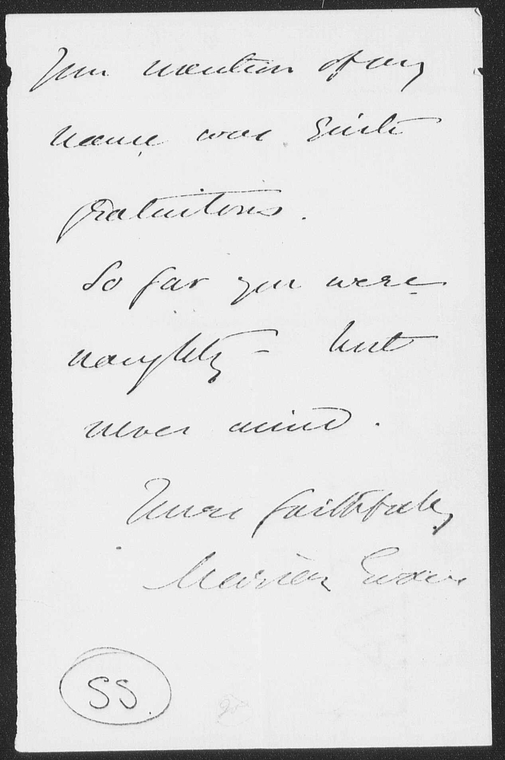 Your mention of my
name was quite
gratuitous.
So far you were
naughty - but
never mind.
Yours faithfully
Marian Evans
SS.